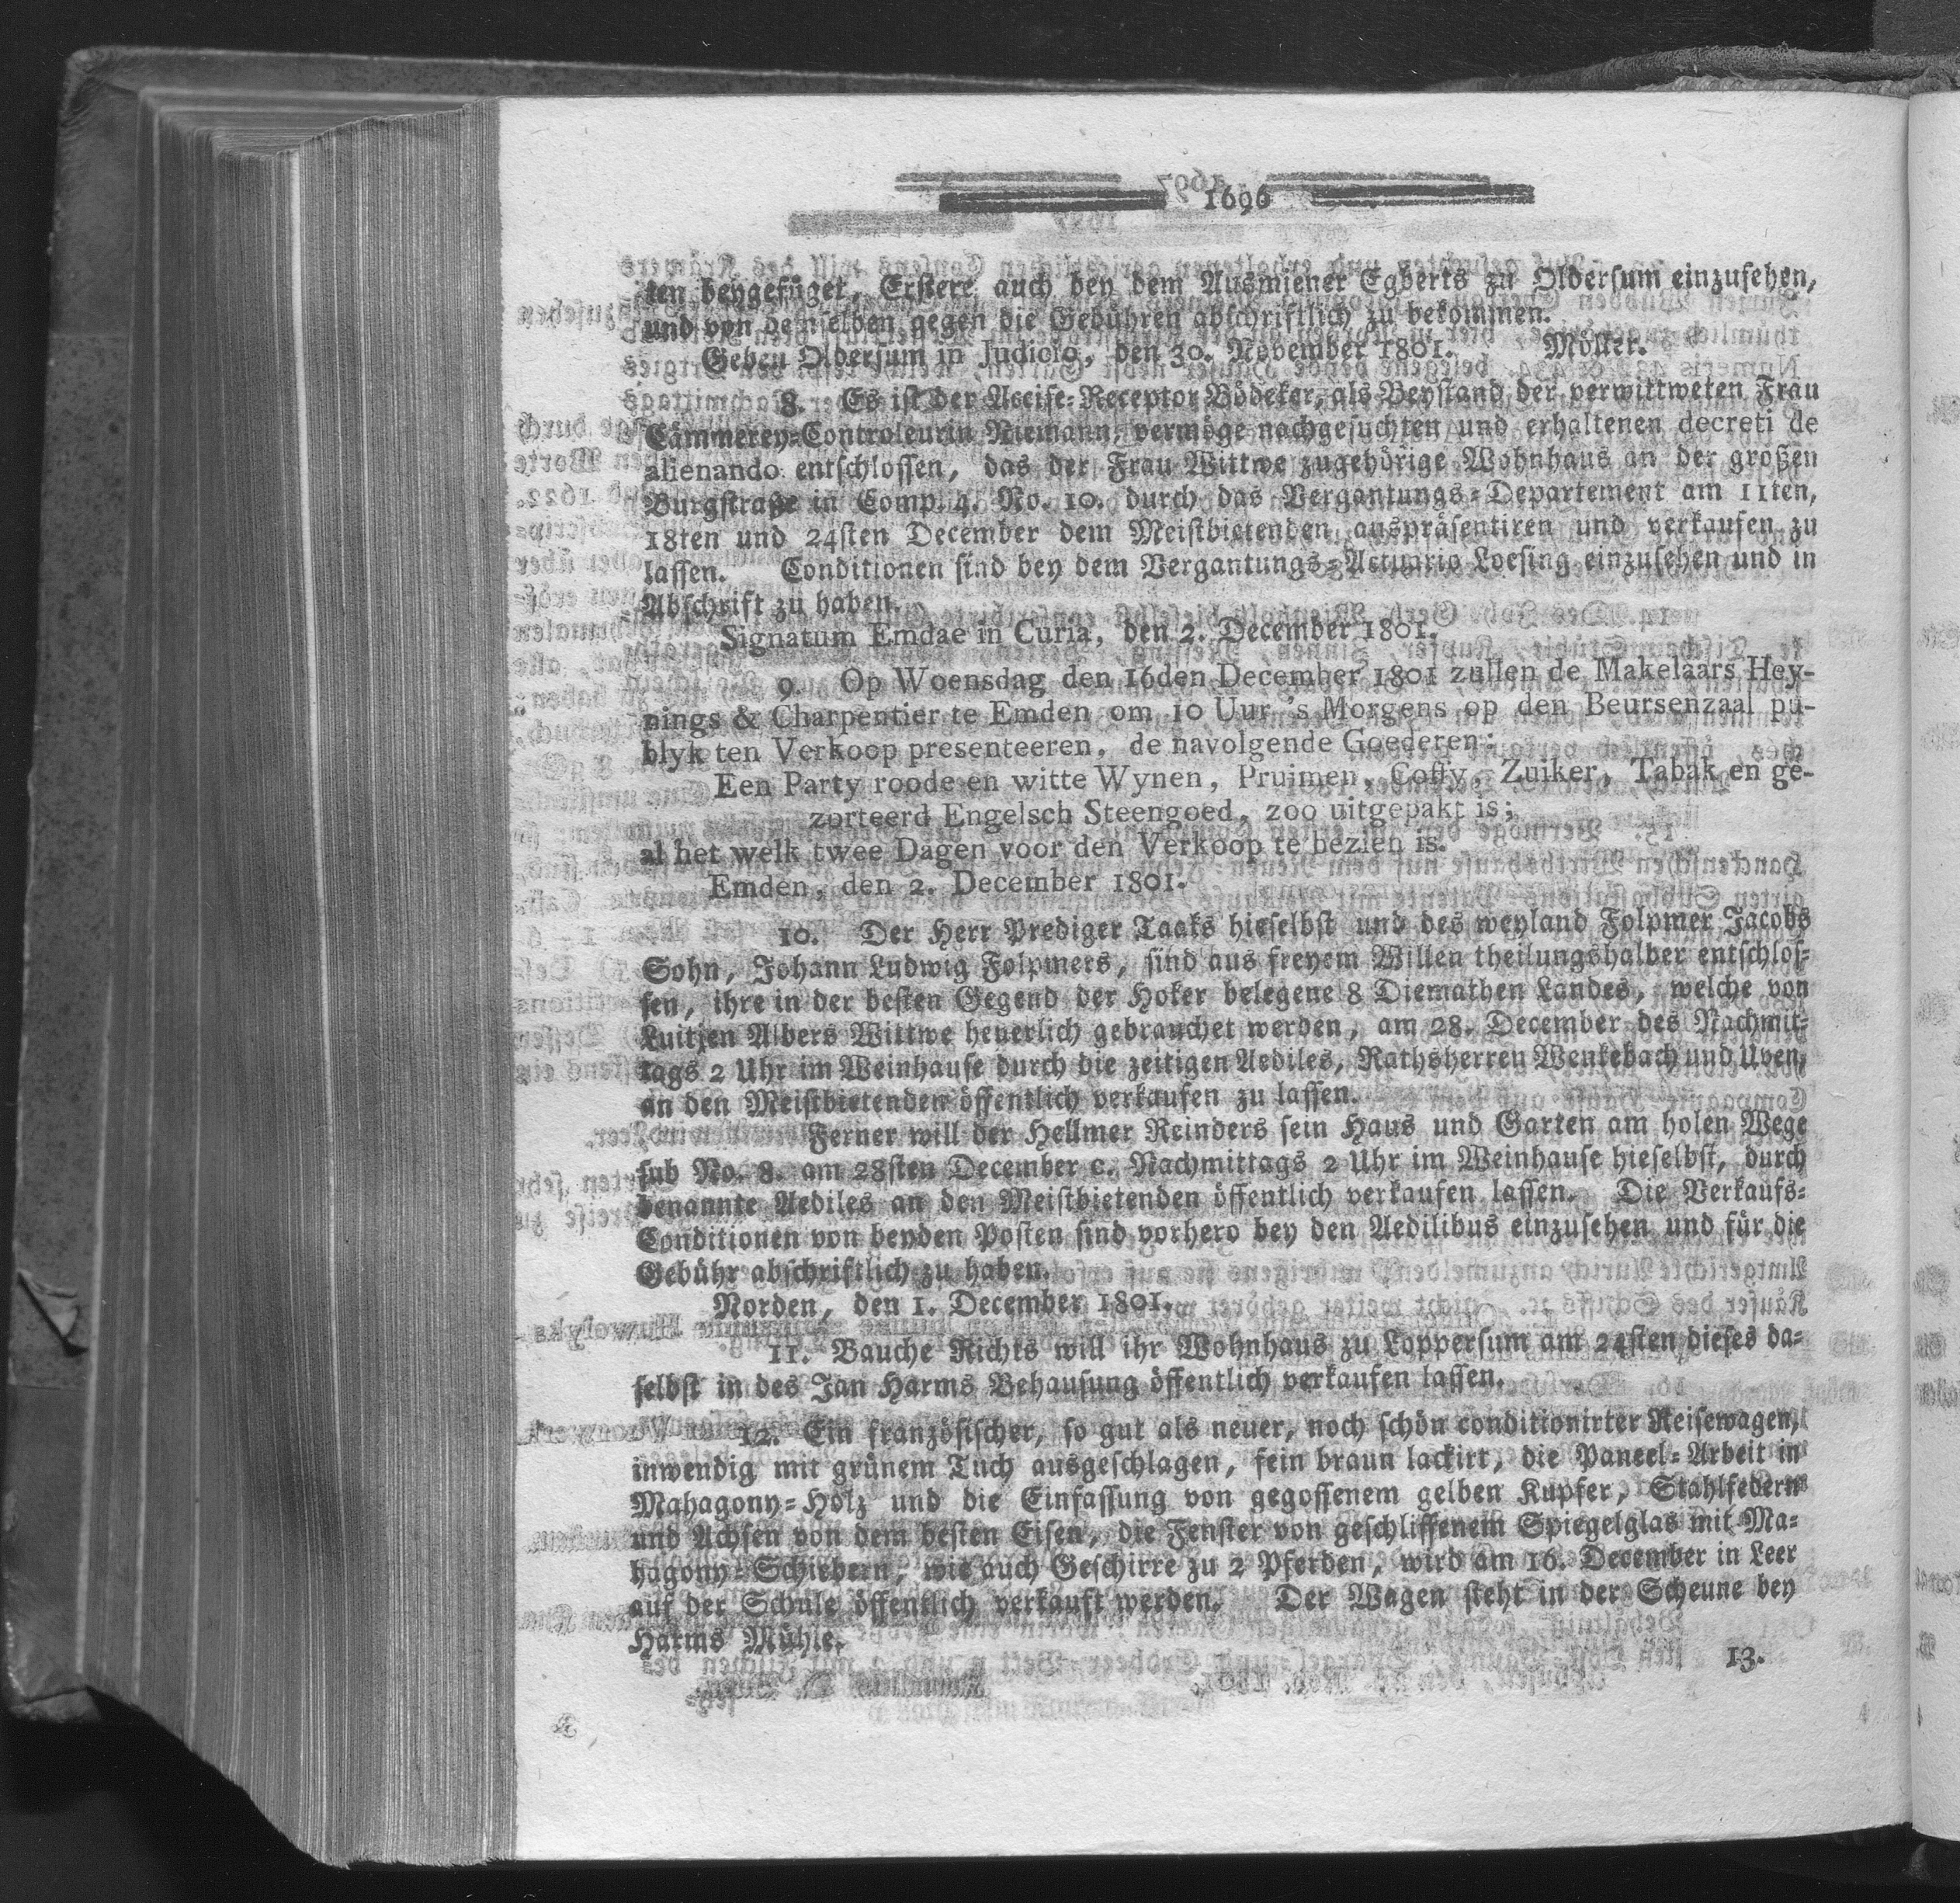 1696
ten beygefüget, Erstere auch bey dem Ausmiener Egberts zu Oldersum einzusehen,
und von demselben gegen die Gebühren abschriftlich zu bekommen.
Geben Oldersum in Judicio, den 30. November 1801. Möller.
8. Es ist der Accise-Receptor Bödeker, als Beystand der verwittweten Frau
Cämmerey-Controleurin Niemann, vermöge nachgesuchten und erhaltenen decreti de
alienando entschlossen, das der Frau Wittwe zugehörige Wohnhaus an der großen
Burgstraße in Comp. 4. No. 10. durch das Vergantungs-Departement am 11ten,
18ten und 24sten December dem Meistbietenden auspräsentiren und verkaufen zu
lassen. Conditionen sind bey dem Vergantungs-Actuario Loesing einzusehen und in
Abschrift zu haben.
Signatum Emdae in Curia, den 2. December 1801.
9. Op Woensdag den 16den December 1801 zullen de Makelaars Hey-
nings & Charpentier te Emden om 10 Uur 's Morgens op den Beursenzaal pu-
blyk ten Verkoop presenteeren, de navolgende Goederen:
Een Party roode en witte Wynen, Pruimen, Coffy, Zuiker, Tabak en ge-
zorteerd Engelsch Steengoed, zoo uitgepakt is;
al het welk twee Dagen voor den Verkoop te bezien is.
Emden, den 2. December 1801.
10. Der Herr Prediger Taaks hieselbst und des weyland Folpmer Jacobs
Sohn, Johann Ludwig Folpmers, sind aus freyem Willen theilungshalber entschlos-
sen, ihre in der besten Gegend der Hoker belegene 8 Diemathen Landes, welche von
Luitjen Albers Wittwe heuerlich gebrauchet werden, am 28. December des Nachmit-
tags 2 Uhr im Weinhause durch die zeitigen Aediles, Rathsherren Wenkebach und Uven,
an den Meistbietenden öffentlich verkaufen zu lassen.
Ferner will der Hellmer Reinders sein Haus und Garten am holen Wege
sub No. 8. am 28sten December c. Nachmittags 2 Uhr im Weinhause hieselbst, durch
benannte Aediles an den Meistbietenden öffentlich verkaufen lassen. Die Verkaufs-
Conditionen von beyden Posten sind vorhero bey den Aedilibus einzusehen und für die
Gebühr abschriftlich zu haben.
Norden, den 1. December 1801.
11. Bauche Richts will ihr Wohnhaus zu Loppersum am 24sten dieses da-
selbst in des Jan Harms Behausung öffentlich verkaufen lassen.
12. Ein französischer, so gut als neuer, noch schön conditionirter Reisewagen,
inwendig mit grünem Tuch ausgeschlagen, fein braun lackirt, die Paneel-Arbeit in
Mahagony-Holz und die Einfassung von gegossenem gelben Kupfer, Stahlfedern
und Achsen von dem besten Eisen, die Fenster von geschliffenem Spiegelglas mit Ma-
hagony-Schiebern, wie auch Geschirre zu 2 Pferden, wird am 16. December in Leer
auf der Schule öffentlich verkauft werden. Der Wagen steht in der Scheune bey
Harms Mühle.
13.